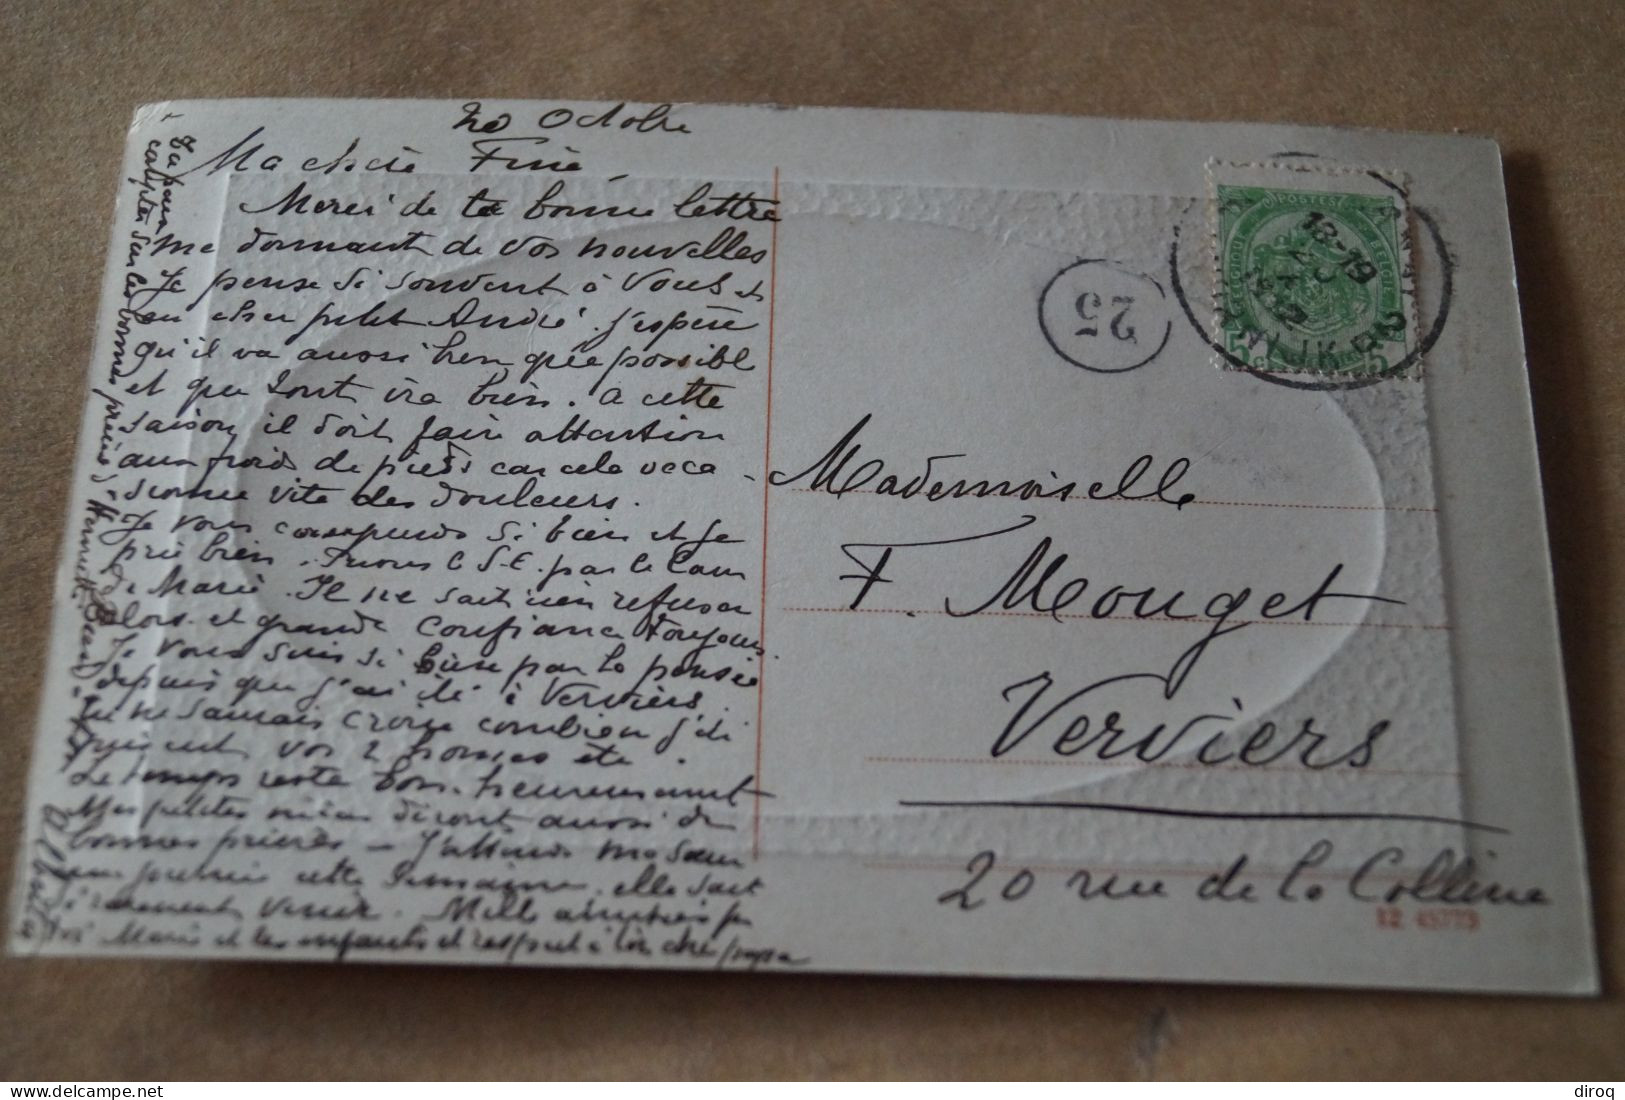 20 Octobre
Ma chère Finie,
Merci de ta bonne lettre
me donnant de vos nouvelles
Je pense si souvent à vous et
au cher petit André. J'espère
qu'il va aussi bien que possible
et que tout ira bien. A cette
saison il doit faire attention
aux froids de pieds car cela occa-
sionne vite des douleurs.
Je vous comprends si bien et je
prie bien. Prions le S.C. par le Cœur
de Marie. Il ne sait rien refuser
alors et grande confiance toujours.
Je vous suis si bien par la pensée
depuis que j'ai été à Verviers
Tu ne saurais croire combien j'ai
vos 2 bonnes
Le temps reste bon, heureusement
Mes petites diront aussi de
bonnes prières — J'attends ma Sœur
cette semaine, elle sait
si rarement venir. Mille amitiés pr
toi Marie et les enfants et respect à ton cher papa
comptez sur les bonnes prières d'Henriette
POSTES
BELGIQUE
BELGIE
5c 5
18-19
1912
25
Mademoiselle
F. Mouget
Verviers
20 rue de la Colline
12 45779
diroq